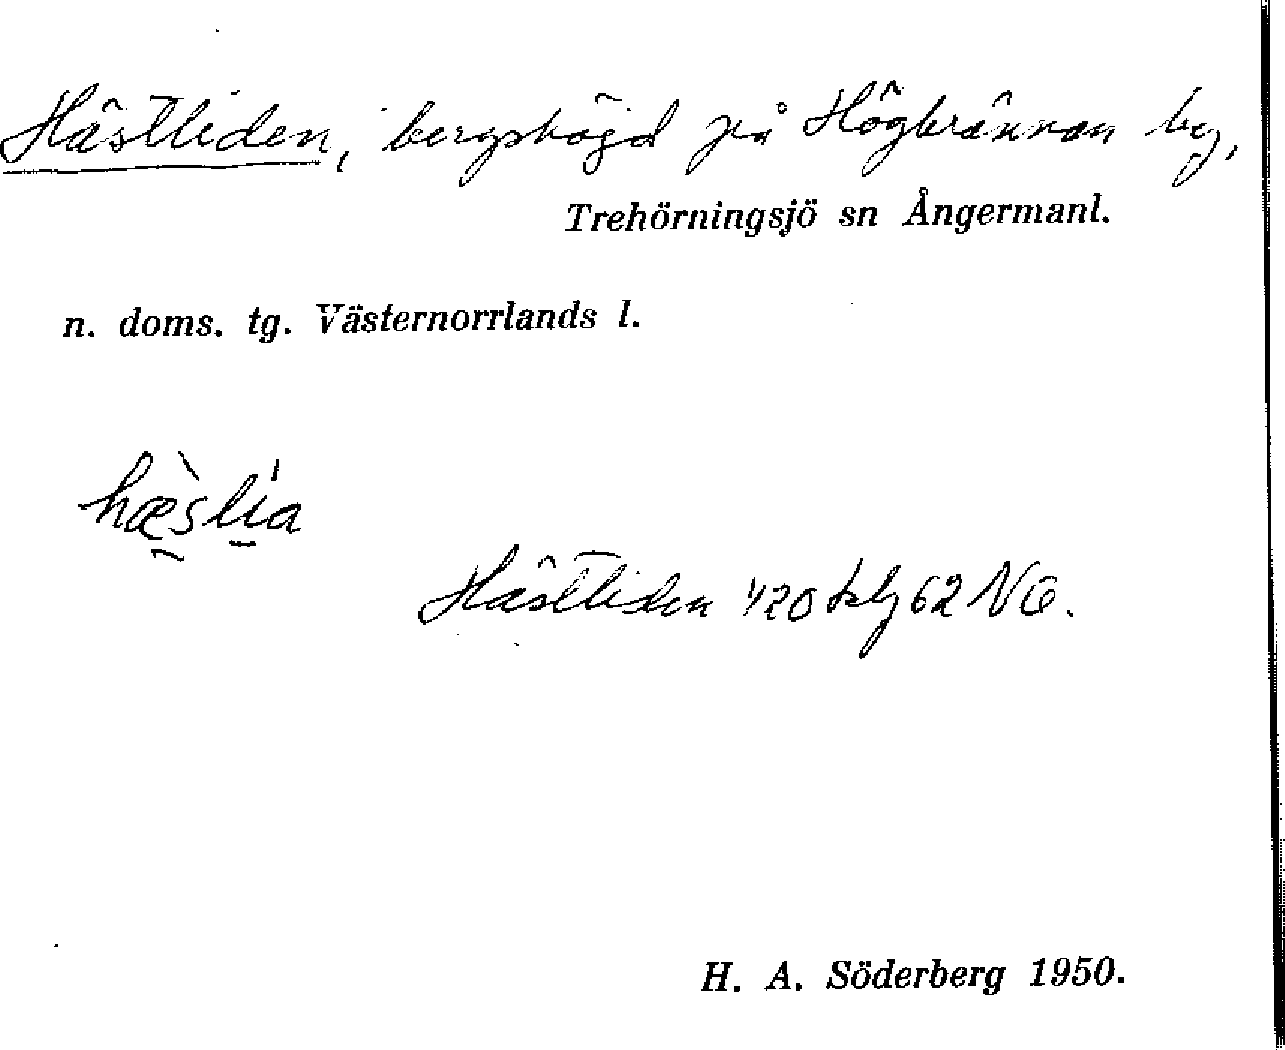 Hästliden, bergshöjd på Högbrännan bg,
Trehörningsjö sn Ångermanl.
n. doms. tg. Västernorrlands l.
hæ̀slía
Hästliden 420 bl 62 NO.
H. A. Söderberg 1950.